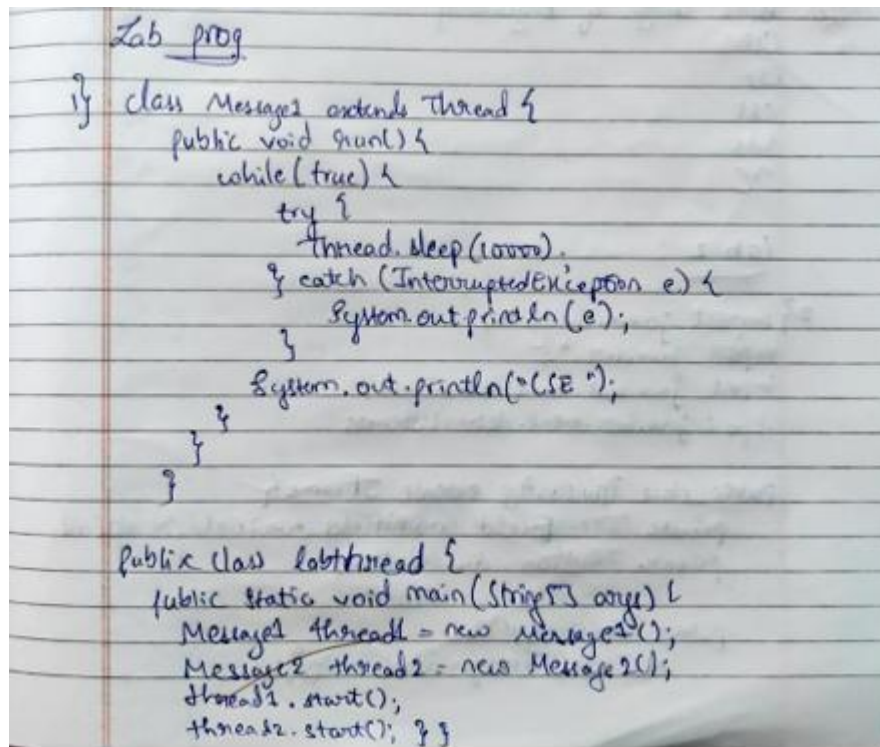 Lab prog
1} class Message1 extends Thread {
public void run() {
while (true) {
try {
thread.sleep(10000).
} catch (InterruptedException e) {
System.out.println(e);
}
System.out.println("CSE");
}
}
}
public class labthread {
public static void main(String[] args) {
Message1 thread1 = new Message1();
Message2 thread2 = new Message2();
thread1.start();
thread2.start(); } }